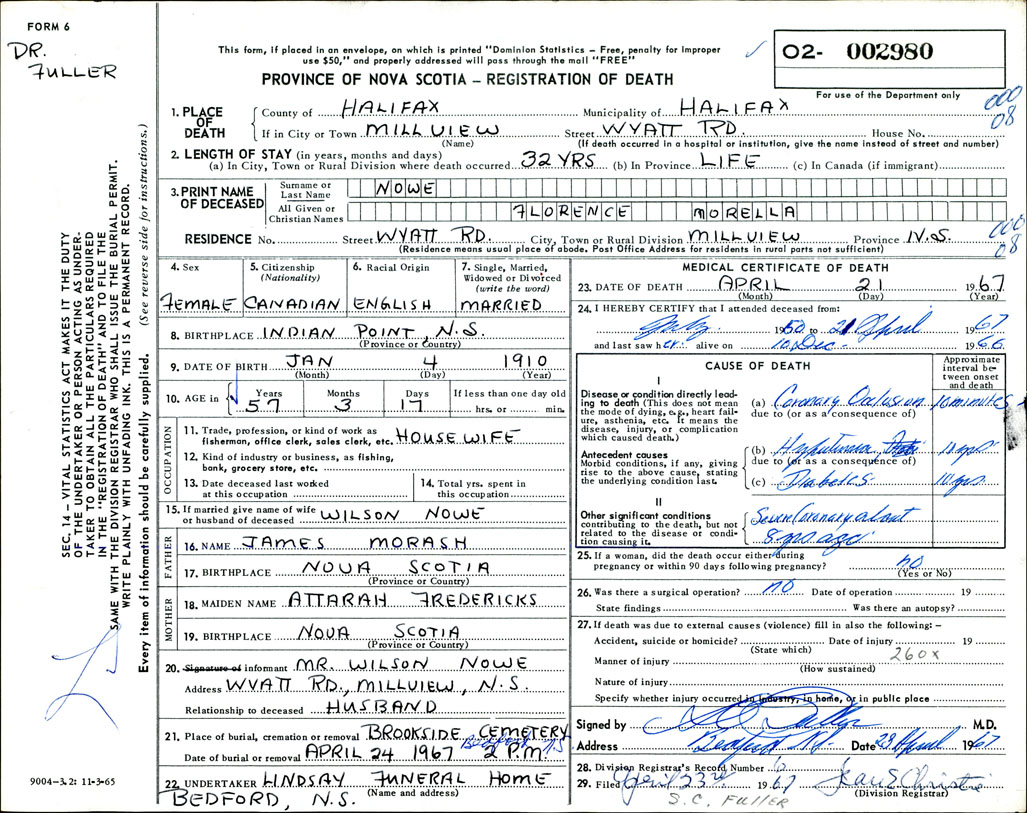 FORM 6
DR.
FULLER
This form, if placed in an envelope, on which is printed "Dominion Statistics – Free, penalty for improper
use $50," and properly addressed will pass through the mail "FREE"
PROVINCE OF NOVA SCOTIA – REGISTRATION OF DEATH
O2- 002980
For use of the Department only
000
08
1. PLACE OF DEATH
County of HALIFAX Municipality of HALIFAX
If in City or Town MILLVIEW Street WYATT RD. House No.
(Name) (If death occurred in a hospital or institution, give the name instead of street and number)
2. LENGTH OF STAY (in years, months and days)
(a) In City, Town or Rural Division where death occurred 32 YRS (b) In Province LIFE (c) In Canada (if immigrant)
3. PRINT NAME OF DECEASED
Surname or Last Name NOWE
All Given or Christian Names FLORENCE MORELLA
RESIDENCE No. Street WYATT RD. City, Town or Rural Division MILLVIEW Province N.S.
(Residence means usual place of abode. Post Office Address for residents in rural parts not sufficient)
000
08
4. Sex FEMALE
5. Citizenship (Nationality) CANADIAN
6. Racial Origin ENGLISH
7. Single, Married, Widowed or Divorced (write the word) MARRIED
8. BIRTHPLACE INDIAN POINT, N.S.
(Province or Country)
9. DATE OF BIRTH JAN 4 1910
(Month) (Day) (Year)
10. AGE in Years 57 Months 3 Days 17 If less than one day old
hrs. or min.
OCCUPATION
11. Trade, profession, or kind of work as
fisherman, office clerk, sales clerk, etc. HOUSE WIFE
12. Kind of industry or business, as fishing,
bank, grocery store, etc.
13. Date deceased last worked
at this occupation
14. Total yrs. spent in
this occupation
15. If married give name of wife
or husband of deceased WILSON NOWE
FATHER
16. NAME JAMES MORASH
17. BIRTHPLACE NOVA SCOTIA
(Province or Country)
MOTHER
18. MAIDEN NAME ATTARAH FREDERICKS
19. BIRTHPLACE NOVA SCOTIA
(Province or Country)
20. Signature of informant MR. WILSON NOWE
Address WYATT RD., MILLVIEW, N.S.
Relationship to deceased HUSBAND
21. Place of burial, cremation or removal BROOKSIDE CEMETERY
Bedford N.S
Date of burial or removal APRIL 24 1967 2 P.M.
22. UNDERTAKER LINDSAY FUNERAL HOME
(Name and address)
BEDFORD, N.S.
MEDICAL CERTIFICATE OF DEATH
23. DATE OF DEATH APRIL 21 1967
(Month) (Day) (Year)
24. I HEREBY CERTIFY that I attended deceased from:
1950 to 21 April 1967
and last saw her alive on 10 Dec 1966
CAUSE OF DEATH
Approximate interval between onset and death
I
Disease or condition directly leading to death (This does not mean the mode of dying, e.g., heart failure, asthenia, etc. It means the disease, injury, or complication which caused death.)
(a) Coronary Occlusion 10 minutes
due to (or as a consequence of)
Antecedent causes
Morbid conditions, if any, giving rise to the above cause, stating the underlying condition last.
(b) Hypertension 10 yrs.
due to (or as a consequence of)
(c) Diabetes 10 yrs
II
Other significant conditions
contributing to the death, but not related to the disease or condition causing it.
Coronary about
8 yrs ago
25. If a woman, did the death occur either during
pregnancy or within 90 days following pregnancy? no
(Yes or No)
26. Was there a surgical operation? no Date of operation 19
State findings Was there an autopsy?
27. If death was due to external causes (violence) fill in also the following: –
Accident, suicide or homicide? Date of injury 19
(State which)
260X
Manner of injury
(How sustained)
Nature of injury
Specify whether injury occurred in industry, in home, or in public place
Signed by M.D.
Address Bedford N.S. Date 23 April 1967
28. Division Registrar's Record Number
29. Filed April 23rd 1967 Jean E Christie
(Division Registrar)
S.C. FULLER
SEC. 14 – VITAL STATISTICS ACT MAKES IT THE DUTY
OF THE UNDERTAKER OR PERSON ACTING AS UNDER-
TAKER TO OBTAIN ALL THE PARTICULARS REQUIRED
IN THE "REGISTRATION OF DEATH" AND TO FILE THE
SAME WITH THE DIVISION REGISTRAR WHO SHALL ISSUE THE BURIAL PERMIT.
WRITE PLAINLY WITH UNFADING INK. THIS IS A PERMANENT RECORD.
Every item of information should be carefully supplied. (See reverse side for instructions.)
9004-3.2: 11-3-65